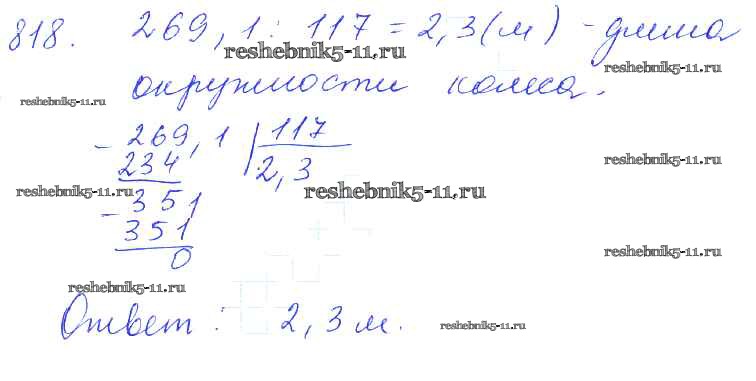 818. 269,1 : 117 = 2,3 (м) - длина
reshebnik5-11.ru
reshebnik5-11.ru
окружности
reshebnik5-11.ru
- 269,1 | 117
234 2,3
reshebnik5-11.ru
reshebnik5-11.ru
reshebnik5-11.ru
- 351
351
0
reshebnik5-11.ru
reshebnik5-11.ru
Ответ: 2,3 м.
reshebnik5-11.ru